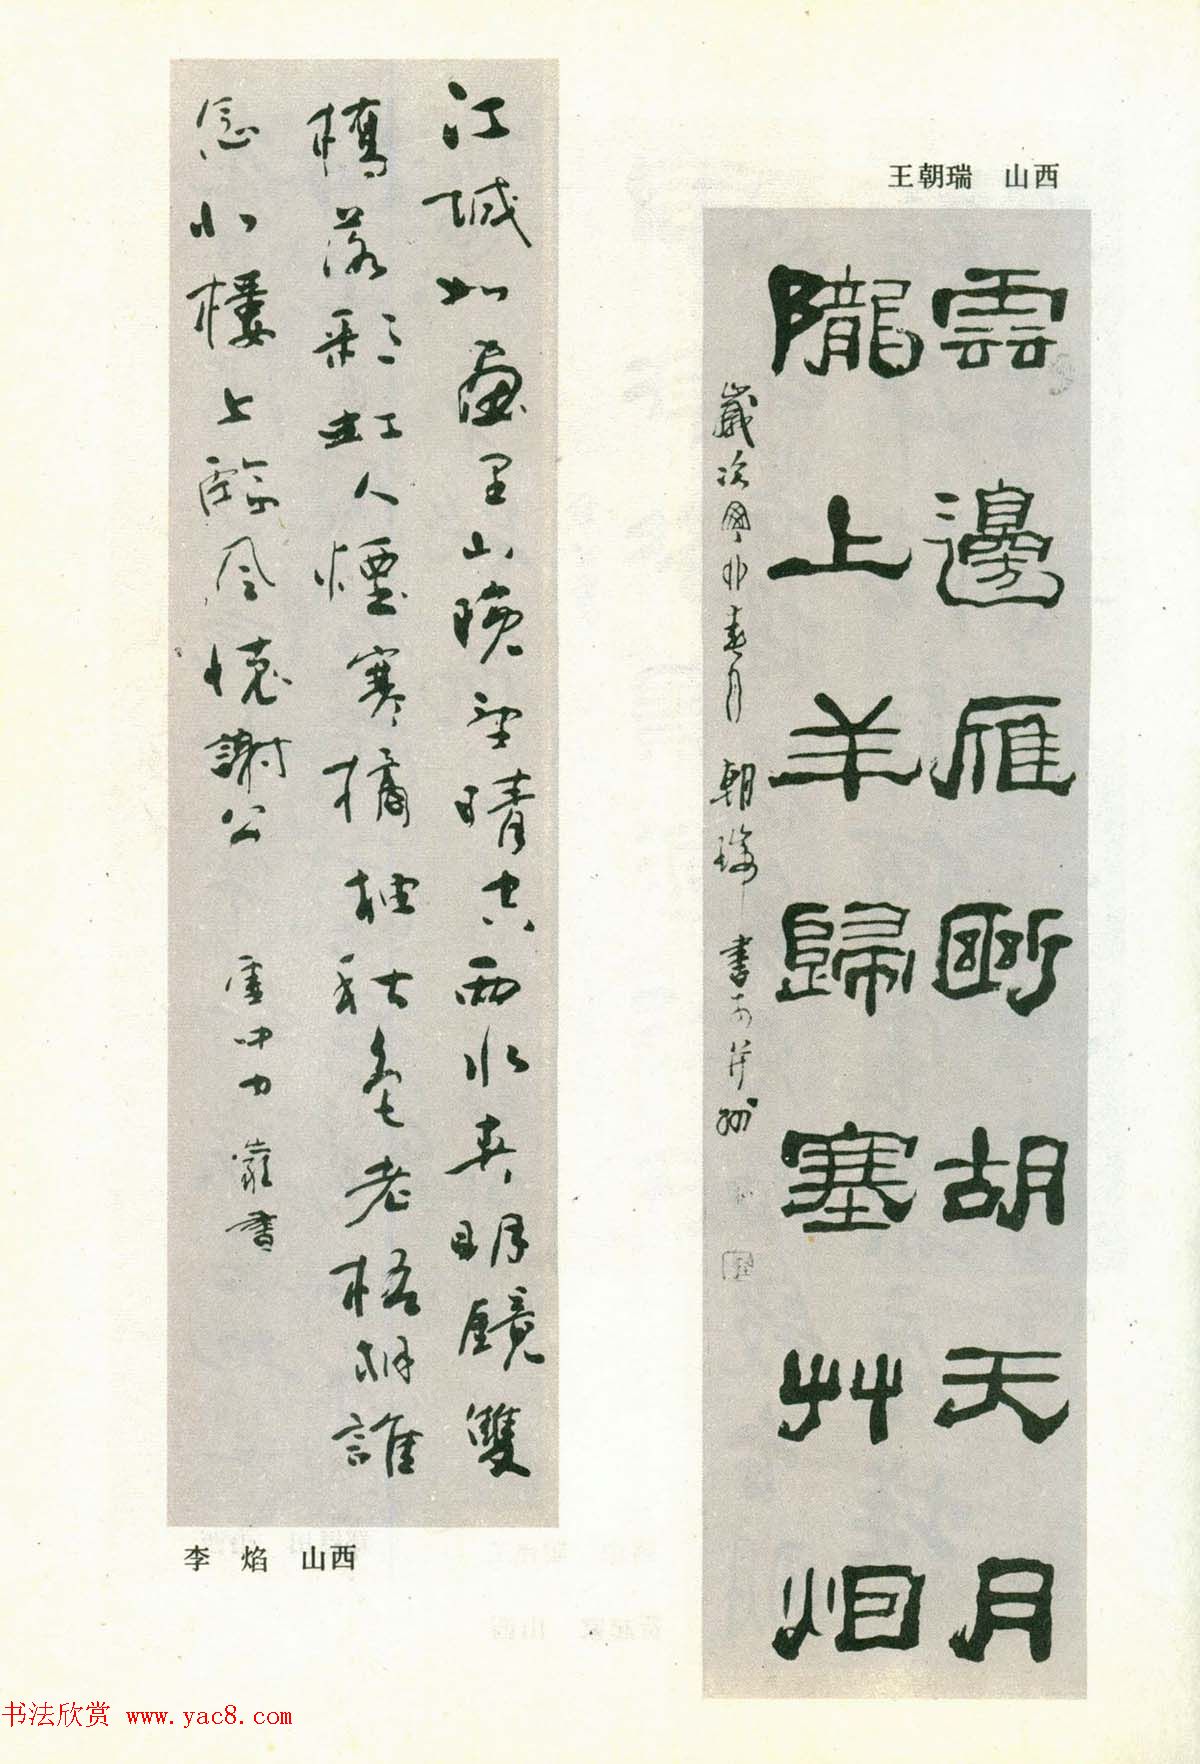 王朝瑞 山西
雲邊雁斷胡天月
隴上羊歸塞艸烟
歲次 春月 朝瑞 書于并州
江城如畫里山晚望晴空兩水夾明鏡雙
橋落彩虹人煙寒橘柚秋色老梧桐誰
念北樓上臨風懷謝公 書
李 焰 山西
书法欣赏 www.yac8.com